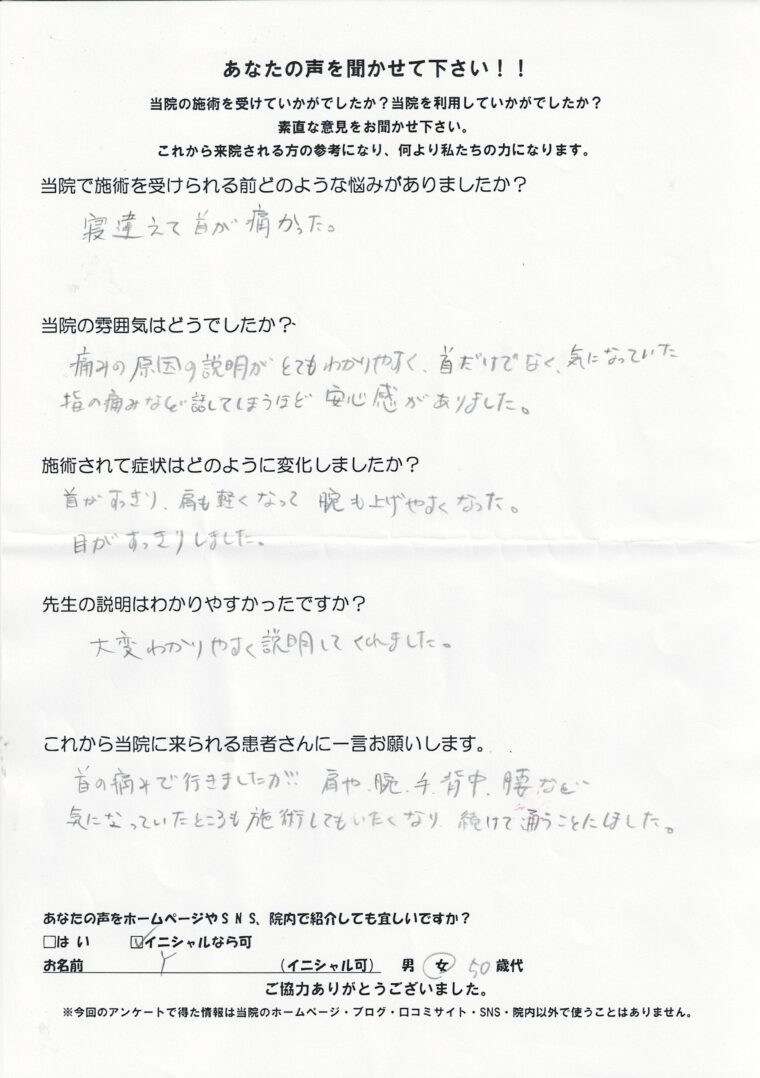 あなたの声を聞かせて下さい！！
当院の施術を受けていかがでしたか？当院を利用していかがでしたか？
素直な意見をお聞かせ下さい。
これから来院される方の参考になり、何より私たちの力になります。
当院で施術を受けられる前どのような悩みがありましたか？
寝違えて首が痛かった。
当院の雰囲気はどうでしたか？
痛みの原因の説明がとてもわかりやすく、首だけでなく、気になっていた
指の痛みなど話してしまうほど安心感がありました。
施術されて症状はどのように変化しましたか？
首がすっきり、肩も軽くなって腕も上げやすくなった。
目がすっきりしました。
先生の説明はわかりやすかったですか？
大変わかりやすく説明してくれました。
これから当院に来られる患者さんに一言お願いします。
首の痛みで行きましたが!!肩や、腕、手、背中、腰など
気になっていたところも施術してもいたくなり、続けて通うことにしました。
あなたの声をホームページやＳＮＳ、院内で紹介しても宜しいですか？
□はい ☑イニシャルなら可
お名前 Y （イニシャル可） 男 女 50歳代
ご協力ありがとうございました。
※今回のアンケートで得た情報は当院のホームページ・ブログ・口コミサイト・SNS・院内以外で使うことはありません。